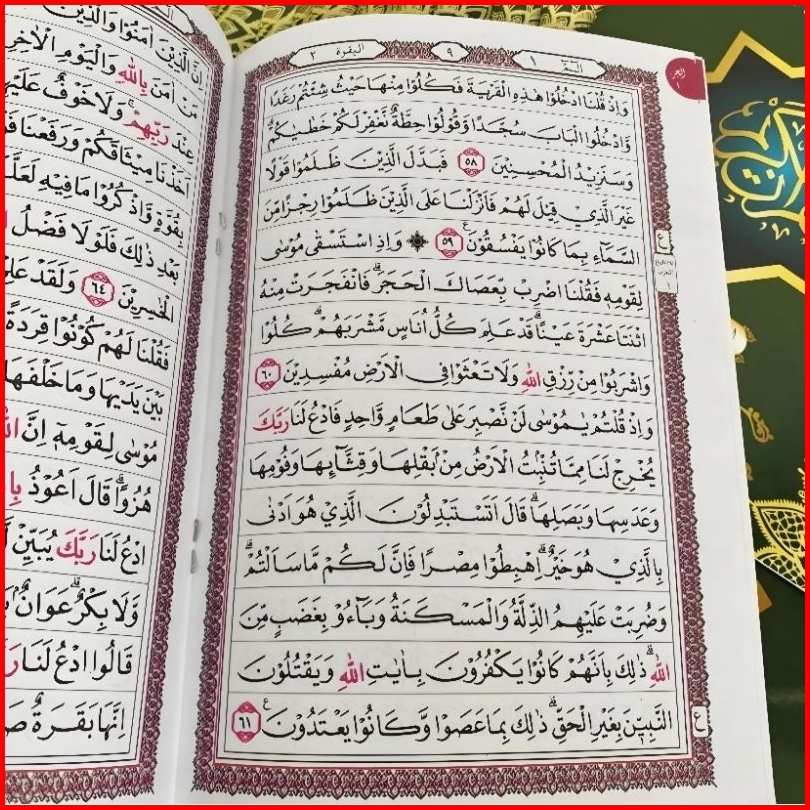 الۤمّۤ ١
٩
البقرة ٢
الجزء ١
وَاِذْ قُلْنَا ادْخُلُوْا هٰذِهِ الْقَرْيَةَ فَكُلُوْا مِنْهَا حَيْثُ شِئْتُمْ رَغَدًا
وَّادْخُلُوا الْبَابَ سُجَّدًا وَّقُوْلُوْا حِطَّةٌ نَّغْفِرْ لَكُمْ خَطٰيٰكُمْ ۗ
وَسَنَزِيْدُ الْمُحْسِنِيْنَ ٥٨ فَبَدَّلَ الَّذِيْنَ ظَلَمُوْا قَوْلًا
غَيْرَ الَّذِيْ قِيْلَ لَهُمْ فَاَنْزَلْنَا عَلَى الَّذِيْنَ ظَلَمُوْا رِجْزًا مِّنَ
السَّمَاۤءِ بِمَا كَانُوْا يَفْسُقُوْنَ ࣖ ٥٩ ۞ وَاِذِ اسْتَسْقٰى مُوْسٰى
لِقَوْمِهٖ فَقُلْنَا اضْرِبْ بِّعَصَاكَ الْحَجَرَۗ فَانْفَجَرَتْ مِنْهُ
اثْنَتَا عَشْرَةَ عَيْنًا ۗ قَدْ عَلِمَ كُلُّ اُنَاسٍ مَّشْرَبَهُمْ ۗ كُلُوْا
وَاشْرَبُوْا مِنْ رِّزْقِ اللّٰهِ وَلَا تَعْثَوْا فِى الْاَرْضِ مُفْسِدِيْنَ ٦٠
وَاِذْ قُلْتُمْ يٰمُوْسٰى لَنْ نَّصْبِرَ عَلٰى طَعَامٍ وَّاحِدٍ فَادْعُ لَنَا رَبَّكَ
يُخْرِجْ لَنَا مِمَّا تُنْۢبِتُ الْاَرْضُ مِنْۢ بَقْلِهَا وَقِثَّاۤىِٕهَا وَفُوْمِهَا
وَعَدَسِهَا وَبَصَلِهَا ۗ قَالَ اَتَسْتَبْدِلُوْنَ الَّذِيْ هُوَ اَدْنٰى
بِالَّذِيْ هُوَ خَيْرٌ ۗ اِهْبِطُوْا مِصْرًا فَاِنَّ لَكُمْ مَّا سَاَلْتُمْ ۗ
وَضُرِبَتْ عَلَيْهِمُ الذِّلَّةُ وَالْمَسْكَنَةُ وَبَاۤءُوْ بِغَضَبٍ مِّنَ
اللّٰهِ ۗ ذٰلِكَ بِاَنَّهُمْ كَانُوْا يَكْفُرُوْنَ بِاٰيٰتِ اللّٰهِ وَيَقْتُلُوْنَ
النَّبِيّٖنَ بِغَيْرِ الْحَقِّ ۗ ذٰلِكَ بِمَا عَصَوْا وَّكَانُوْا يَعْتَدُوْنَ ࣖ ٦١
ع
ع
اِنَّ الَّذِيْنَ اٰمَنُوْا وَالَّذِيْنَ
مَنْ اٰمَنَ بِاللّٰهِ وَالْيَوْمِ الْاٰخِرِ
عِنْدَ رَبِّهِمْۚ وَلَا خَوْفٌ عَلَيْهِمْ
اَخَذْنَا مِيْثَاقَكُمْ وَرَفَعْنَا
بِقُوَّةٍ وَّاذْكُرُوْا مَا فِيْهِ
بَعْدِ ذٰلِكَ فَلَوْلَا فَضْلُ
الْخٰسِرِيْنَ ٦٤ وَلَقَدْ
فَقُلْنَا لَهُمْ كُوْنُوْا قِرَدَةً
بَيْنَ يَدَيْهَا وَمَا خَلْفَهَا
مُوْسٰى لِقَوْمِهٖٓ اِنَّ
هُزُوًا ۗ قَالَ اَعُوْذُ
ادْعُ لَنَا رَبَّكَ يُبَيِّنْ
وَّلَا بِكْرٌۗ عَوَانٌۢ
قَالُوا ادْعُ لَنَا
اِنَّهَا بَقَرَةٌ